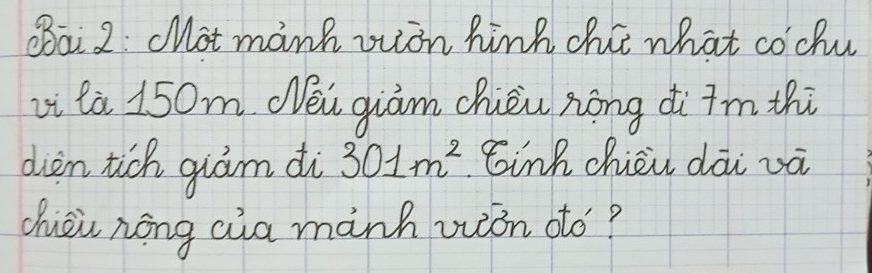 Bài 2: Một mảnh vườn hình chữ nhật có chu
vi là 150m. Nếu giảm chiều rộng đi 7m thì
diện tích giảm đi 301m². Tính chiều dài và
chiều rộng của mảnh vườn đó?